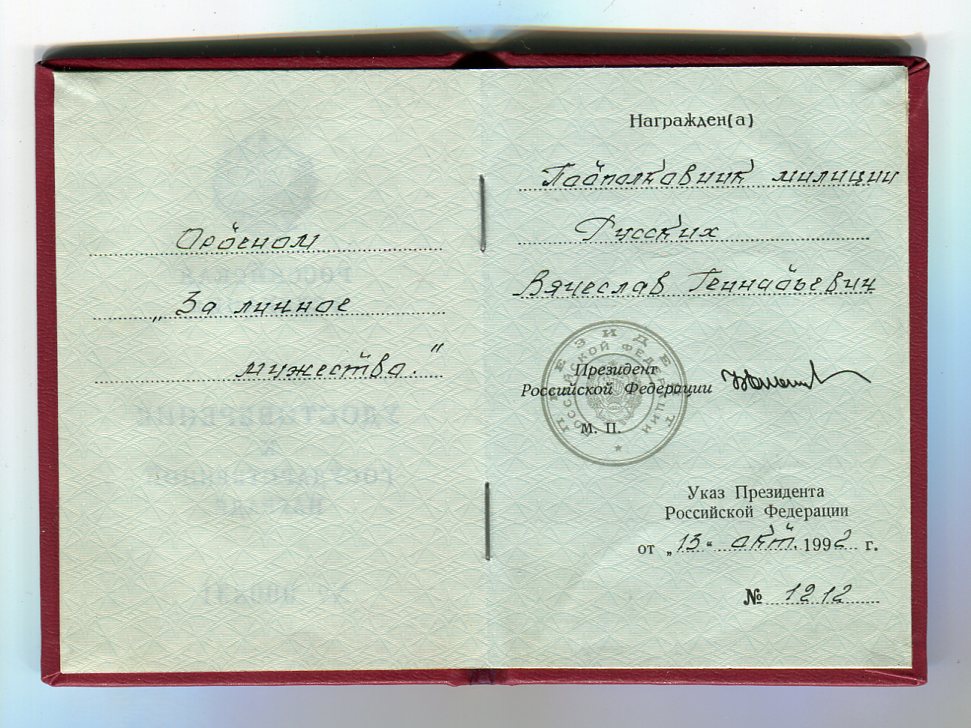 Орденом
„За личное
мужество."
Награжден(а)
Подполковник милиции
Русских
Вячеслав Геннадьевич
ПРЕЗИДЕНТ
РОССИЙСКОЙ ФЕДЕРАЦИИ
Президент
Российской Федерации
М. П.
Указ Президента
Российской Федерации
от „13" окт. 1992 г.
№ 1212